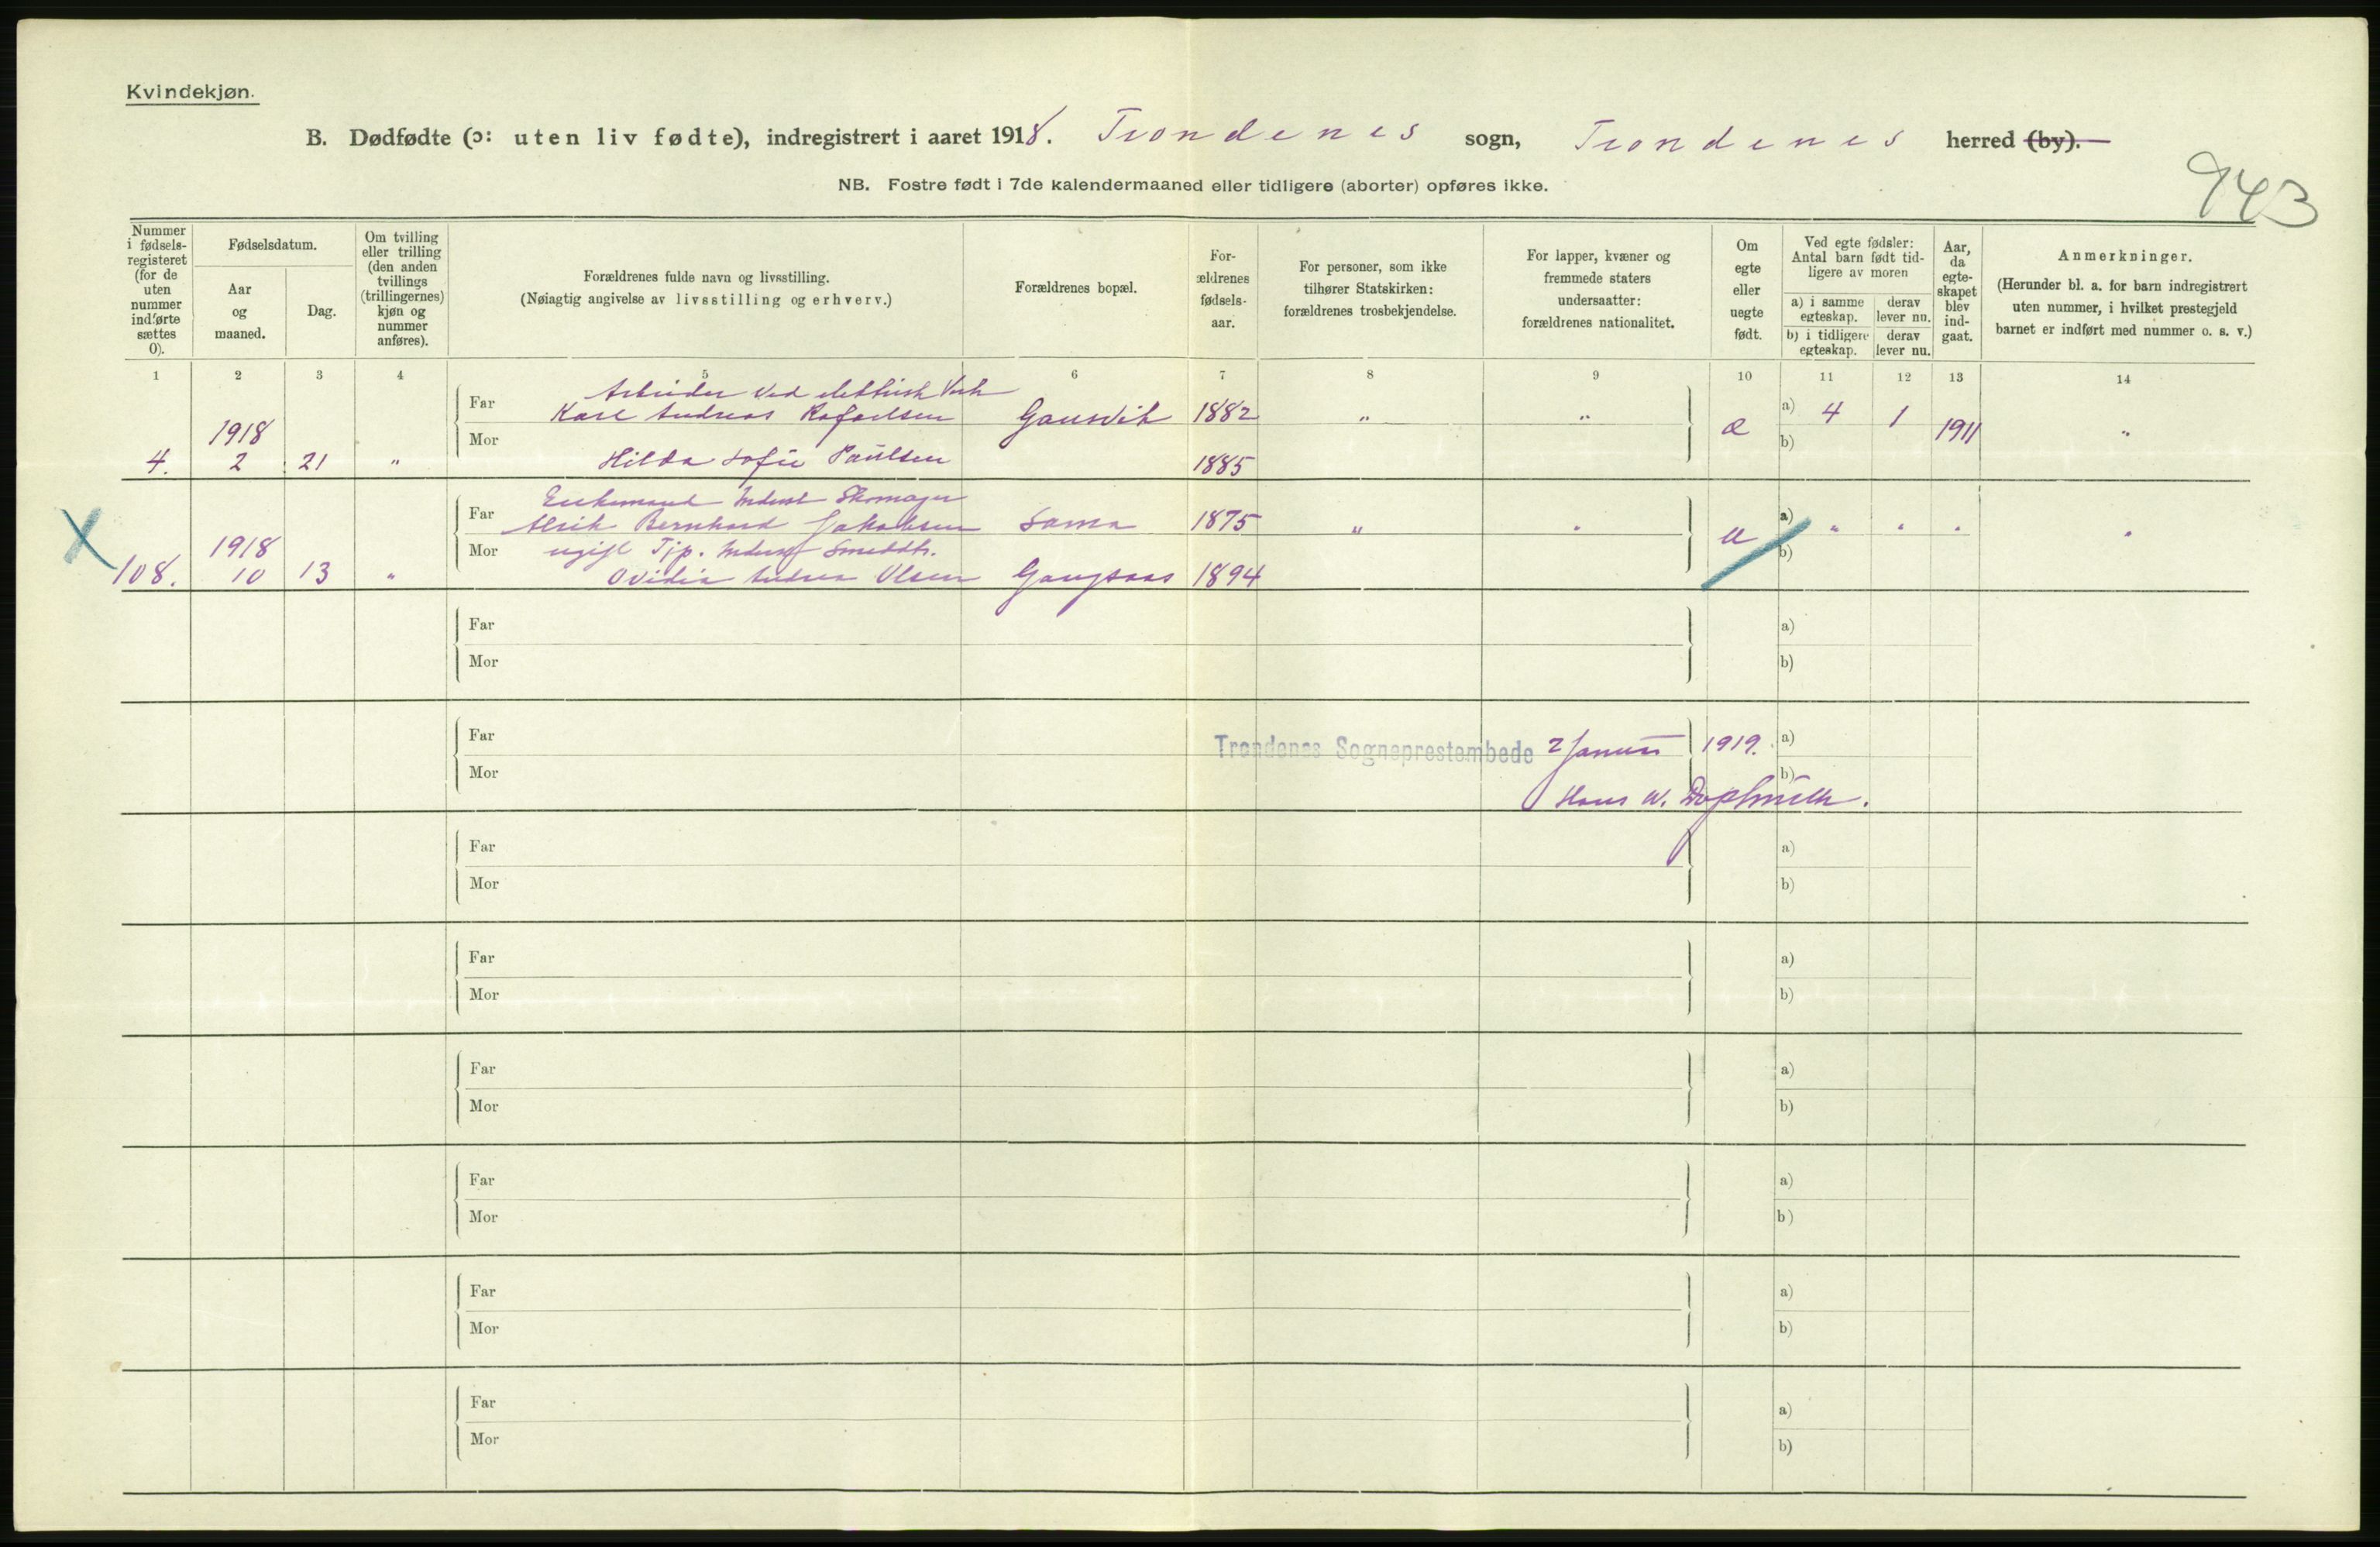 Kvindekjøn.
B. Dødfødte (ɔ: uten liv fødte), indregistrert i aaret 1918. Trondenes sogn, Trondenes herred (by).
NB. Fostre født i 7de kalendermaaned eller tidligere (aborter) opføres ikke.
943
Nummer i fødsels-registeret (for de uten nummer indførte sættes 0).
Fødselsdatum.
Aar og maaned.
Dag.
Om tvilling eller trilling (den anden tvillings (trillingernes) kjøn og nummer anføres).
Forældrenes fulde navn og livsstilling.
(Nøiagtig angivelse av livsstilling og erhverv.)
Forældrenes bopæl.
For-ældrenes fødsels-aar.
For personer, som ikke tilhører Statskirken: forældrenes trosbekjendelse.
For lapper, kvæner og fremmede staters undersaatter: forældrenes nationalitet.
Om egte eller uegte født.
Ved egte fødsler: Antal barn født tid-ligere av moren
a) i samme egteskap.
derav lever nu.
b) i tidligere egteskap.
derav lever nu.
Aar, da egte-skapet blev ind-gaat.
Anmerkninger.
(Herunder bl. a. for barn indregistrert uten nummer, i hvilket prestegjeld barnet er indført med nummer o. s. v.)
1 2 3 4 5 6 7 8 9 10 11 12 13 14
Arbeider ved elektrisk Verk
Far Karl Andreas Rafaelsen Gausvik 1882 " " æ a) 4 1 1911 "
1918
Mor b)
4. 2 21 " Hilda Sofie Paulsen 1885
Enkemand Inderst Skomager
Far Alrik Bernhard Jakobsen Sama 1875 " " u a) " " " "
1918
Mor ugift Tjp. Inderst Smeddtr. b)
108. 10 13 " Ovidia Andrea Olsen Gangsaas 1894
Far a)
Mor b)
Far Trondenes Sogneprestembede 2 Januar 1919. a)
Mor b)
Hans W.
Far a)
Mor b)
Far a)
Mor b)
Far a)
Mor b)
Far a)
Mor b)
Far a)
Mor b)
Far a)
Mor b)